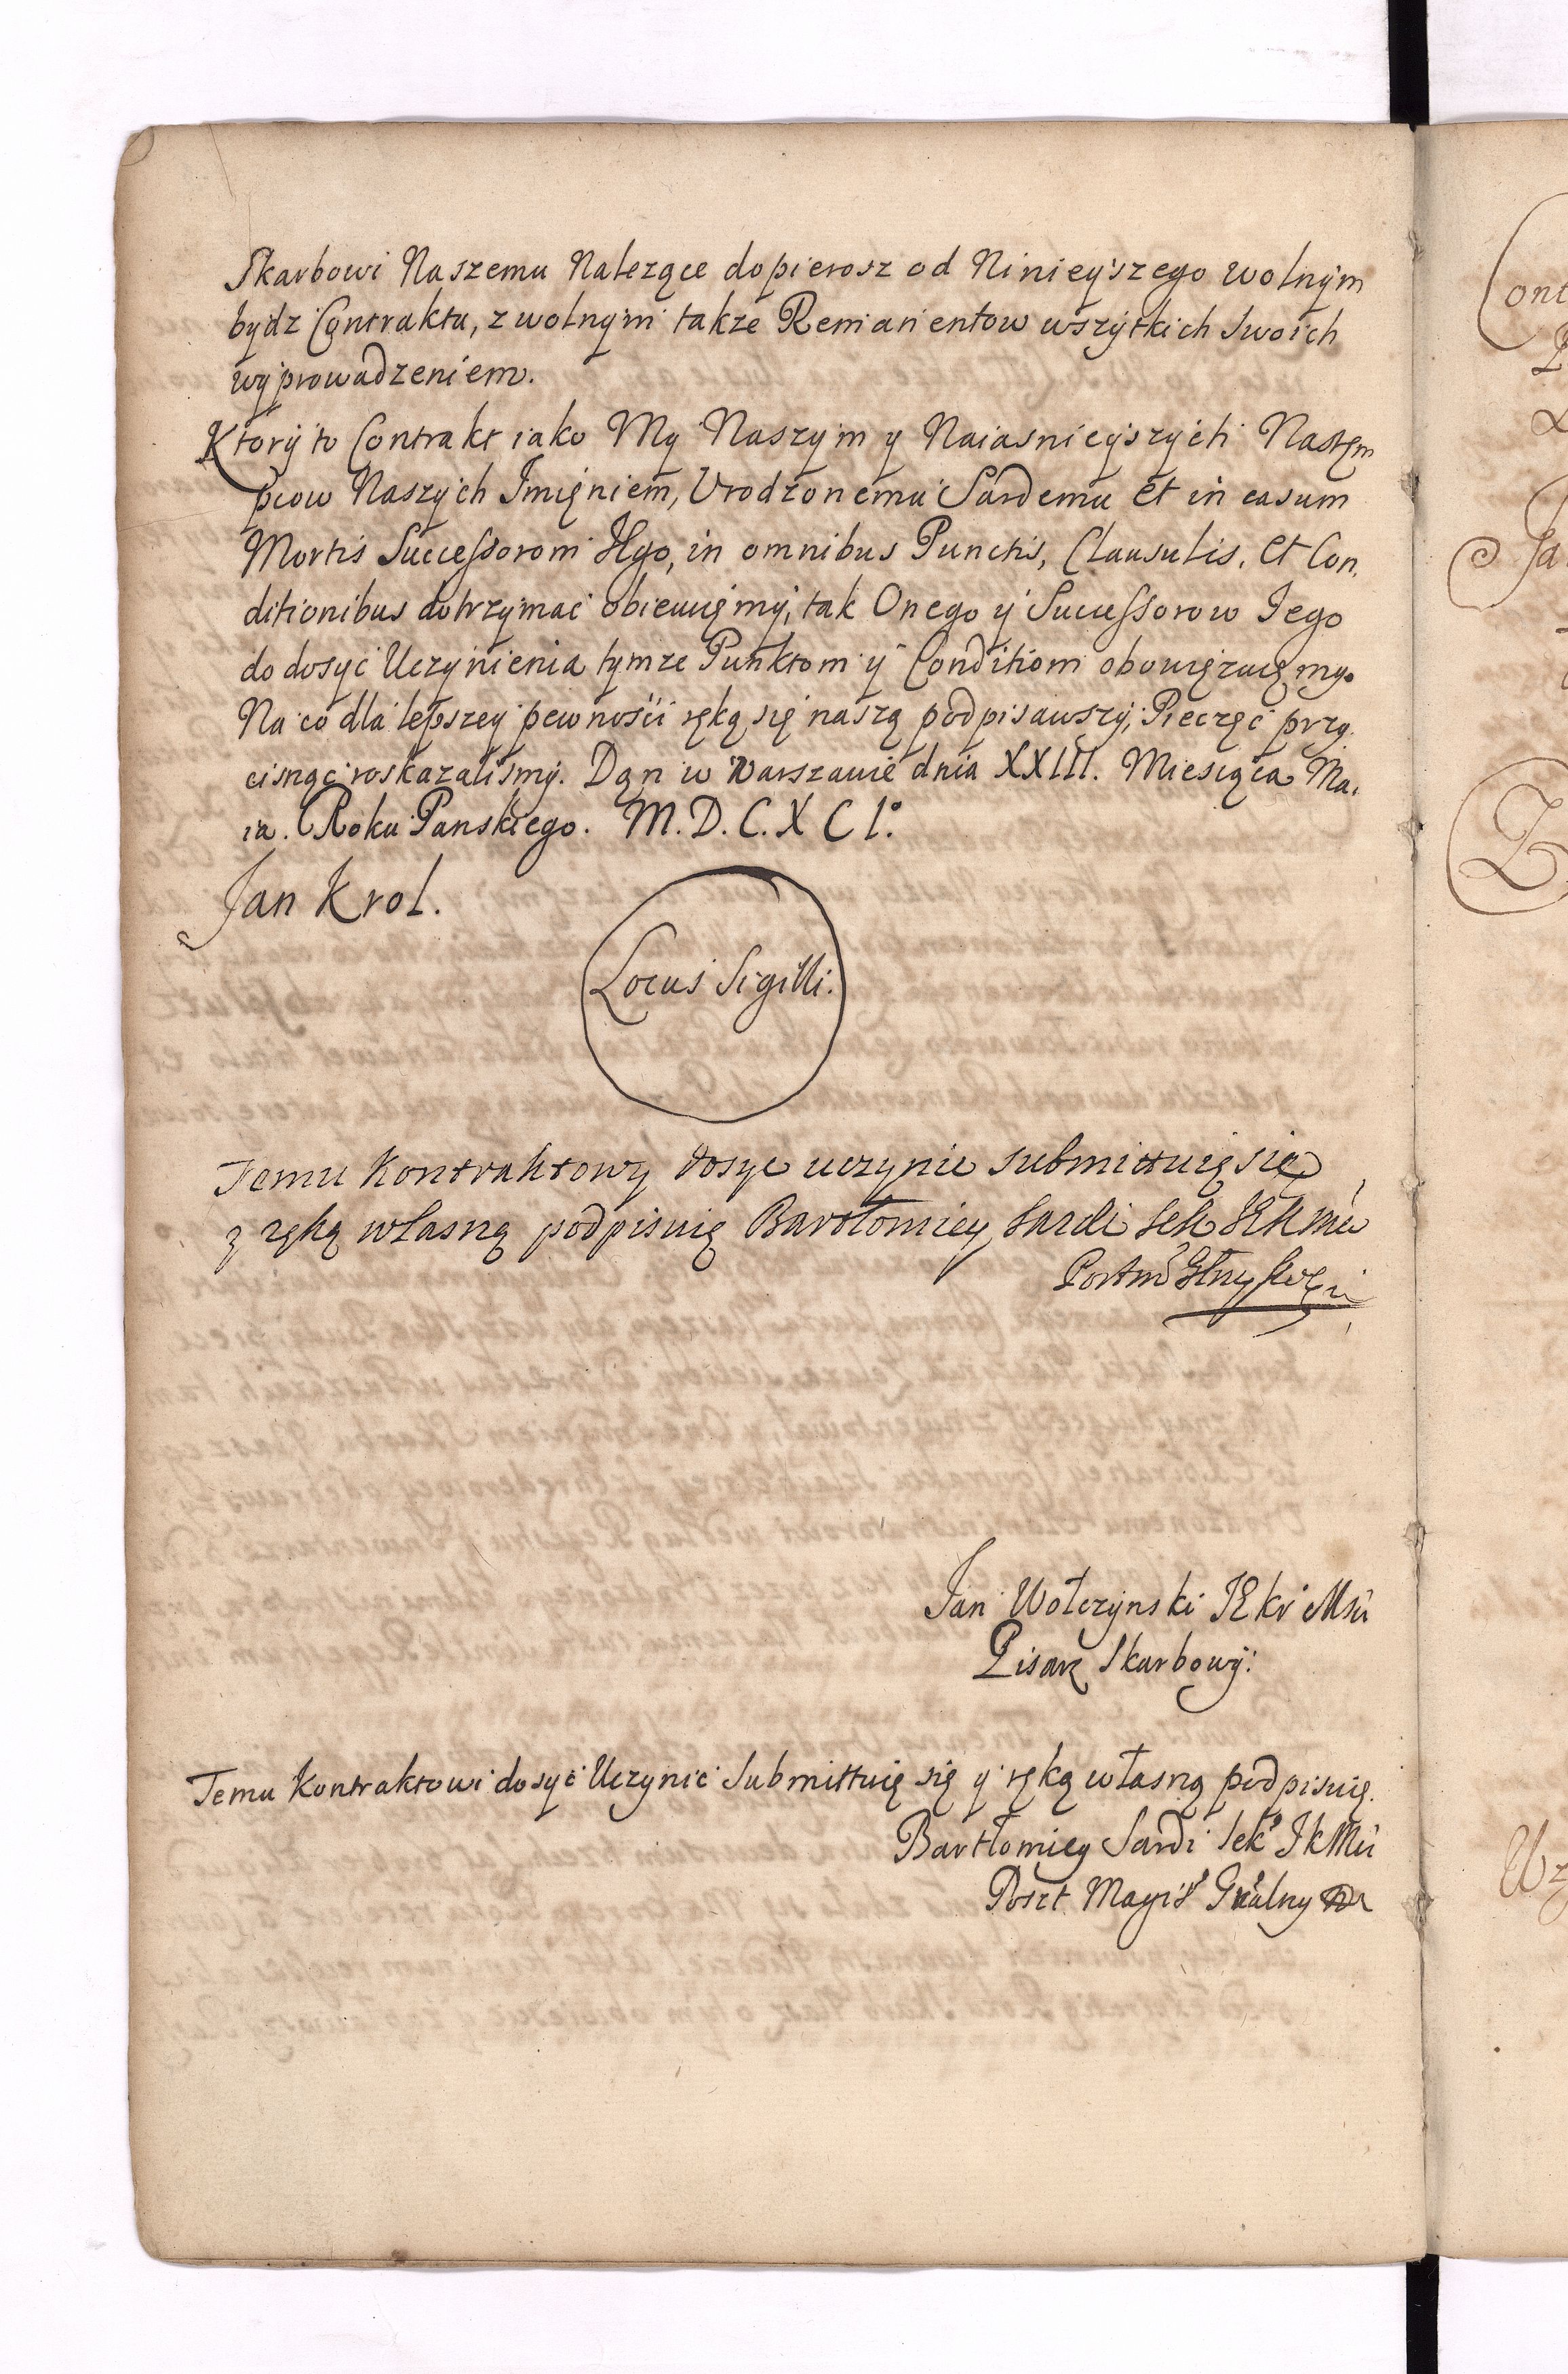 Skarbowi Naszemu Należące dopierosz od Ninieyszego wolnym
bydz Contraktu, z wolnym także Remanentow wszytkich swoich
wyprowadzeniem.
Ktory to Contrakt iako My Naszym y Naiasnieyszych Nastęm
pcow Naszych Imięniem, Urodzonemu Sardemu et in casum
Mortis Successorom Jego, in omnibus Punctis, Clausulis, et Con.
ditionibus dotrzymać obiecuięmy, tak Onego y Successorow Jego
do dosyć Uczynienia tymże Punktom y Conditiom obowięzuięmy.
Na co dla lepszey pewności ręką się naszą podpisawszy, Pieczęć przy
cisnąć roskazalismy. Dąn w Warszawie dnia XXIII. Miesiąca Ma.
ia. Roku Panskiego. M.D.C.XCI.°
Jan Krol.
Locus Sigilli.
Temu Kontraktowy dosyc uczynic submittuię się
y ręką własną podpisuię Bartłomiey Sardi Sek
Jan Wołczynski JEkr Msci
Pisarz Skarbowy.
Temu Kontraktowi dosyć Uczynić Submittuię się y ręką własną podpisuię.
Bartłomiey Sardi Sek JkMci
Poszt Magis Gnalny